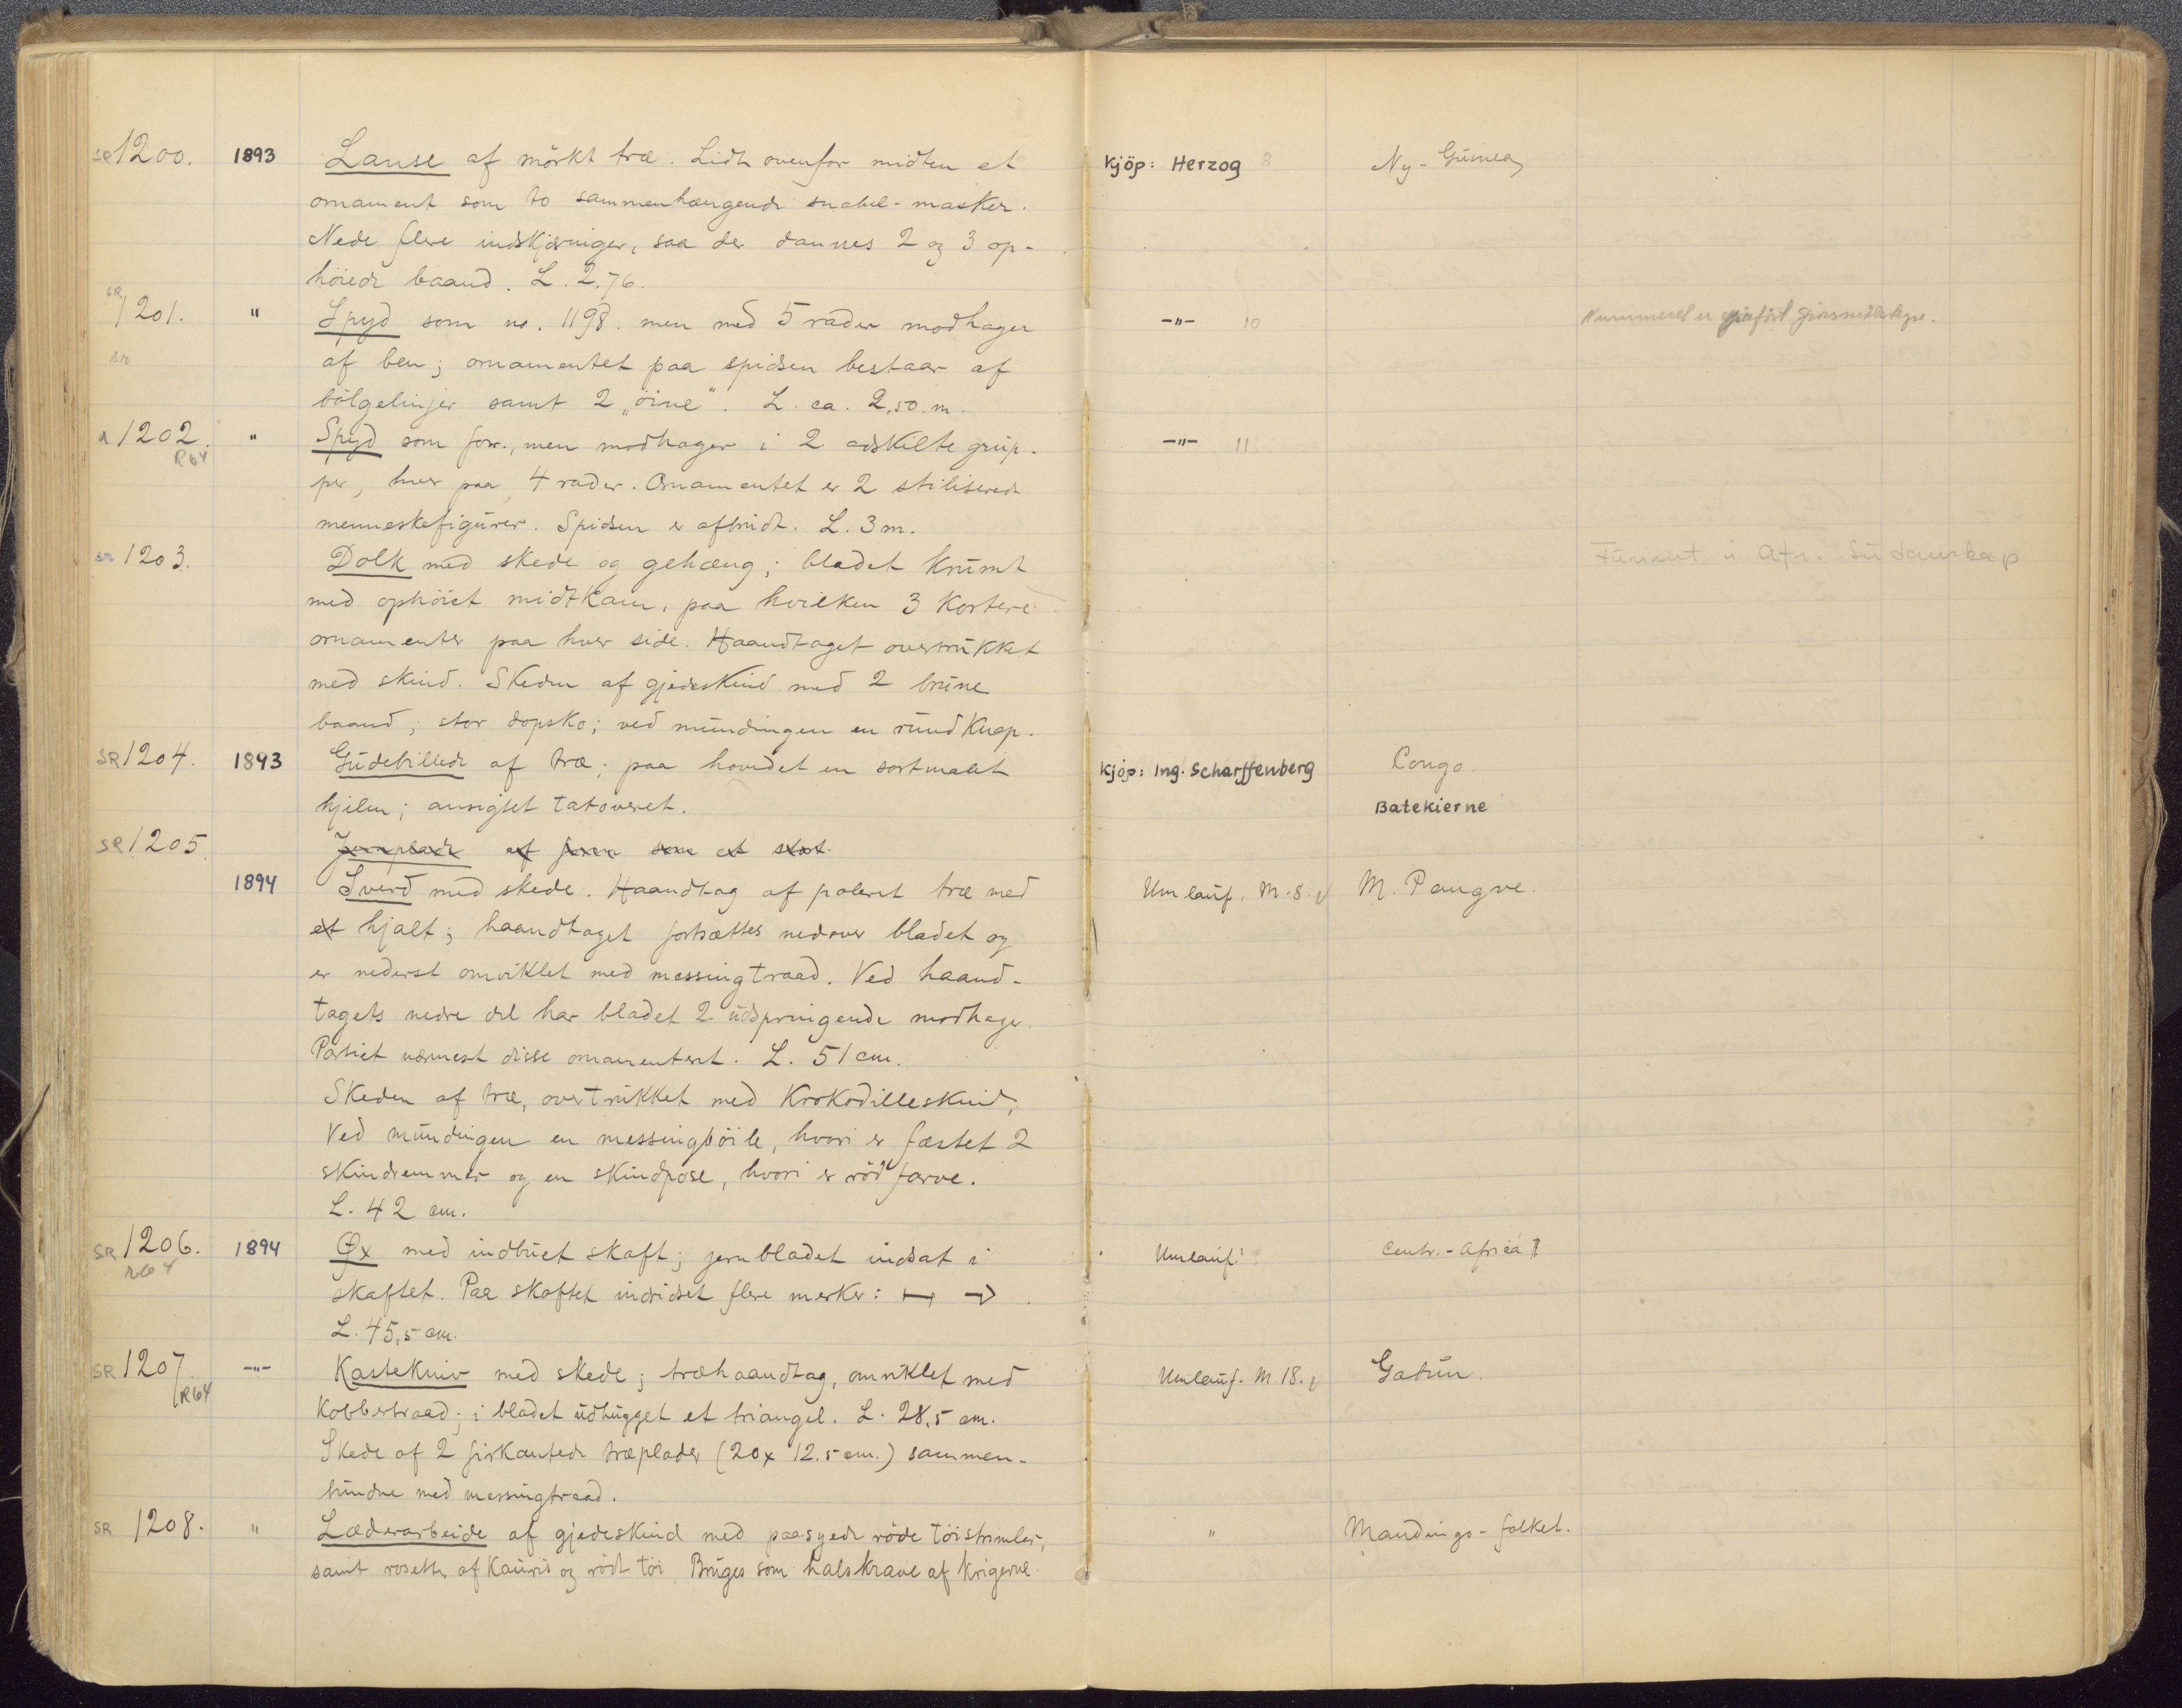 SR 1200. 1893 Lanse af mörkt træ. Lidt ovenfor midten et kjöp: Herzog 8 Ny-Guinea
ornament som to sammenhængende snabel-masker.
Nede flere indskjæringer, saa der dannes 2 og 3 op-
höiede baand. L. 2.76.
SR 1201. " Spyd som no. 1198. men med 5 rader modhager -"- 10 Nummeret er paaført
SR af ben; ornamentet paa spidsen bestaar af
bölgelinjer samt 2 „öine“. L. ca. 2,50 m.
1202. " Spyd som forr., men modhager i 2 adskilte grup- -"- 11
R64 per, hver paa 4 rader. Ornamentet er 2 stiliserede
menneskefigürer. Spidsen er afbrüdt. L. 3 m.
SR 1203. Dolk med skede og gehæng; bladet krümt Fünnet i Afr. Südanskap
med ophöiet midtkam, paa hvilken 3 kortere
ornamenter paa hver side. Haandtaget overtrükket
med skind. Skeden af gjedeskind med 2 brüne
baand; stor dopsko; ved mündingen en ründ knap.
SR 1204. 1893 Güdebillede af træ; paa hovedet en sortmalet kjöp: Ing. Scharffenberg Congo.
hjelm; ansigtet tatoveret. Batekierne
SR 1205. Jernplade af jern som et stort
1894 Sverd med skede. Haandtag af poleret træ med Umlauf. M. 8. M. Pangve.
et hjalt; haandtaget fortsættes nedover bladet og
er nederst omviklet med messingtraad. Ved haand-
tagets nedre del har bladet 2 üdspringende modhager.
Partiet nærmest disse ornamenteret. L. 51 cm.
Skeden af træ, overtrükket med krokodilleskind,
Ved mündingen en messingböile, hvori er fæstet 2
skindremmer og en skindpose, hvori er röd farve.
L. 42 cm.
SR 1206. 1894 Øx med indbüet skaft; jernbladet indsat i Umlauf: Centr.-Africa ?
R64 skaftet. Paa skaftet indridset flere merker: ↦ →
L. 45,5 cm.
SR 1207. -"- Kastekniv med skede; træhaandtag, omviklet med Umlauf. M 18. Gabün.
R64 kobbertraad; i bladet üdhügget et triangel. L. 28,5 cm.
Skede af 2 firkantede træplader (20 x 12.5 cm.) sammen-
bündne med messingtraad.
SR 1208. " Læderarbeide af gjedeskind med paasyede röde töistrimler, " Mandingo-folket.
samt rosetter af Kauris og rödt töi. Brüges som halskrave af krigerne.